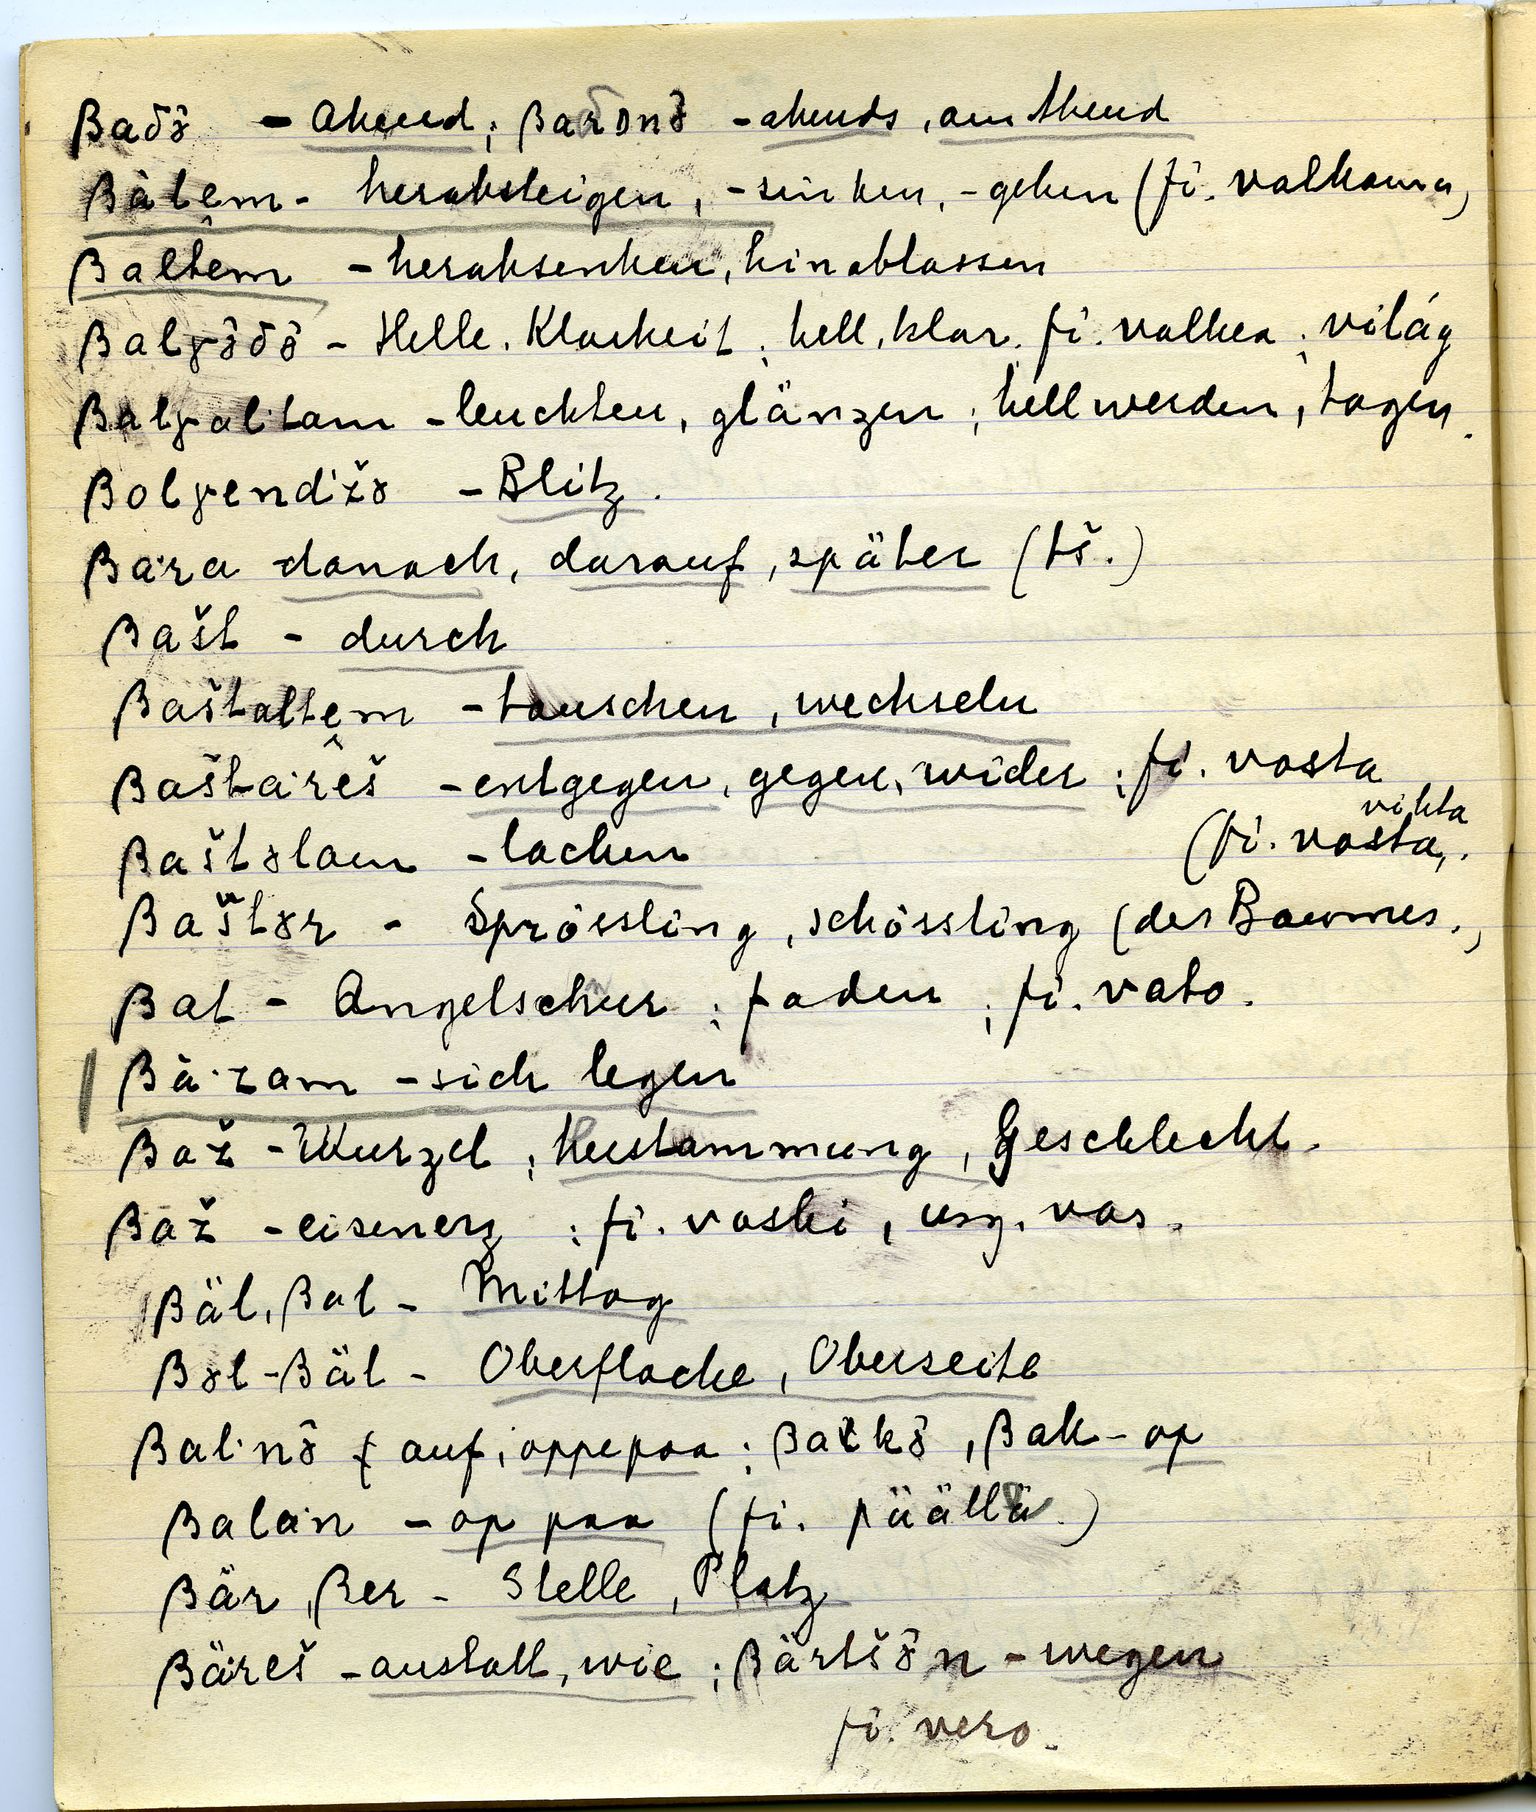 βaδə̂ - Abend; βarə̂nə̂ - abends, am Abend
βàlem - herabsteigen, -sinken, -gehen (fi. valkama)
βaltem - herabsenken, hinablassen
βalγə̂δə̂ - Helle. Klarheit; hell, klar. fi. valkea; világ
βalγaltam - leuchten, glänzen; hell werden, tagen.
βolγendižə - Blitz.
βara danach, darauf, später (tš.)
βašt - durch
βaštaltem - tauschen, wechseln
βaštareš - entgegen, gegen, wider; fi. vasta
βaštəlam - lachen (fi. vasta, vihta
βaštər - Sprössling, schössling (des Baumes.)
βat - Angelschnur; faden; fi. vato.
βàzam - sich legen
βaž - Wurzel; Abstammung, Geschlecht.
βaž - eisenerz; fi. vaski, ung. vas.
βäl, βal - Mittag
βəl-βäl - Oberflache, Oberseite
βalnə̂ auf, oppepaa; βalkə̂, βak - op
βalan - op paa (fi. päällä.)
βär, βer - Stelle, Platz
βäreš - anstatt, wie; βärtšə̂n - wegen
fi. vero.